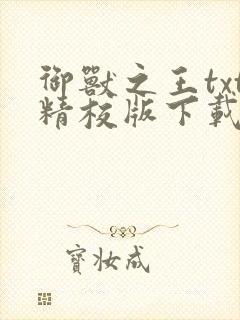 御獸之王txt
精校版下載
寶妝成